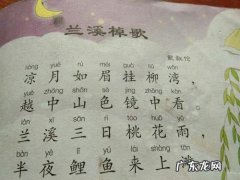 兰溪棹歌
戴叔伦
liáng yuè rú méi guà liǔ wān
凉月如眉挂柳湾，
yuè zhōng shān sè jìng zhōng kàn
越中山色镜中看。
lán xī sān rì táo huā yǔ
兰溪三日桃花雨，
bàn yè lǐ yú lái shàng
半夜鲤鱼来上
广东龙网